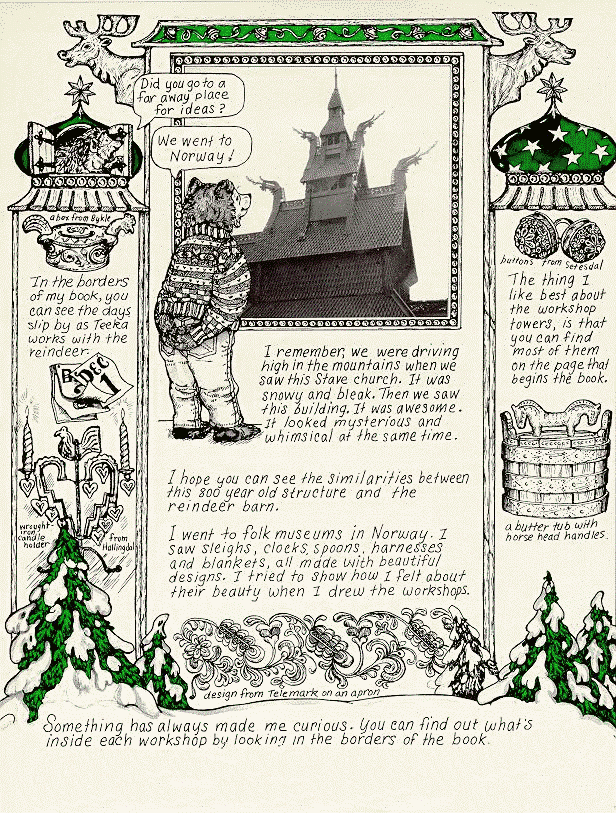 Did you go to a
far away place
for ideas?
We went to
Norway!
a box from Bykle
In the borders
of my book, you
can see the days
slip by as Teeka
works with the
reindeer.
DEC
1
wrought
iron
candle
holder
from
Hallingdal
I remember, we were driving
high in the mountains when we
saw this Stave church. It was
snowy and bleak. Then we saw
this building. It was awesome.
It looked mysterious and
whimsical at the same time.
I hope you can see the similarities between
this 800 year old structure and the
reindeer barn.
I went to folk museums in Norway. I
saw sleighs, clocks, spoons, harnesses
and blankets, all made with beautiful
designs. I tried to show how I felt about
their beauty when I drew the workshops.
design from Telemark on an apron
buttons from Setesdal
The thing I
like best about
the workshop
towers, is that
you can find
most of them
on the page that
begins the book.
a butter tub with
horse head handles.
Something has always made me curious. You can find out what's
inside each workshop by looking in the borders of the book.